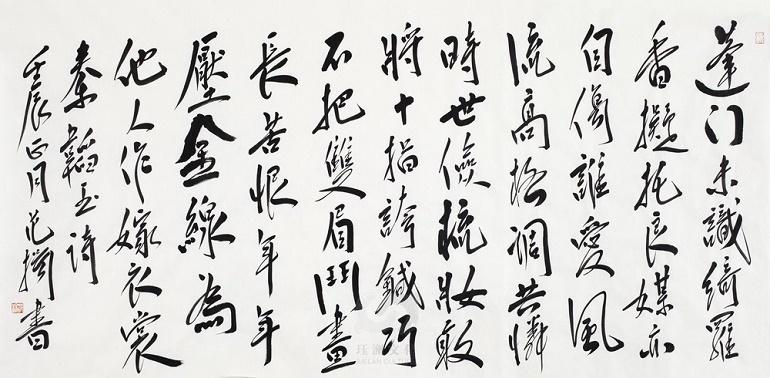 蓬门未識綺羅
香擬托良媒亦
自傷誰愛風
流高格調共憐
時世儉梳妝敢
將十指誇鍼巧
不把雙眉鬥畫
長苦恨年年
壓金線為
他人作嫁衣裳
秦韜玉詩
壬辰正月范書